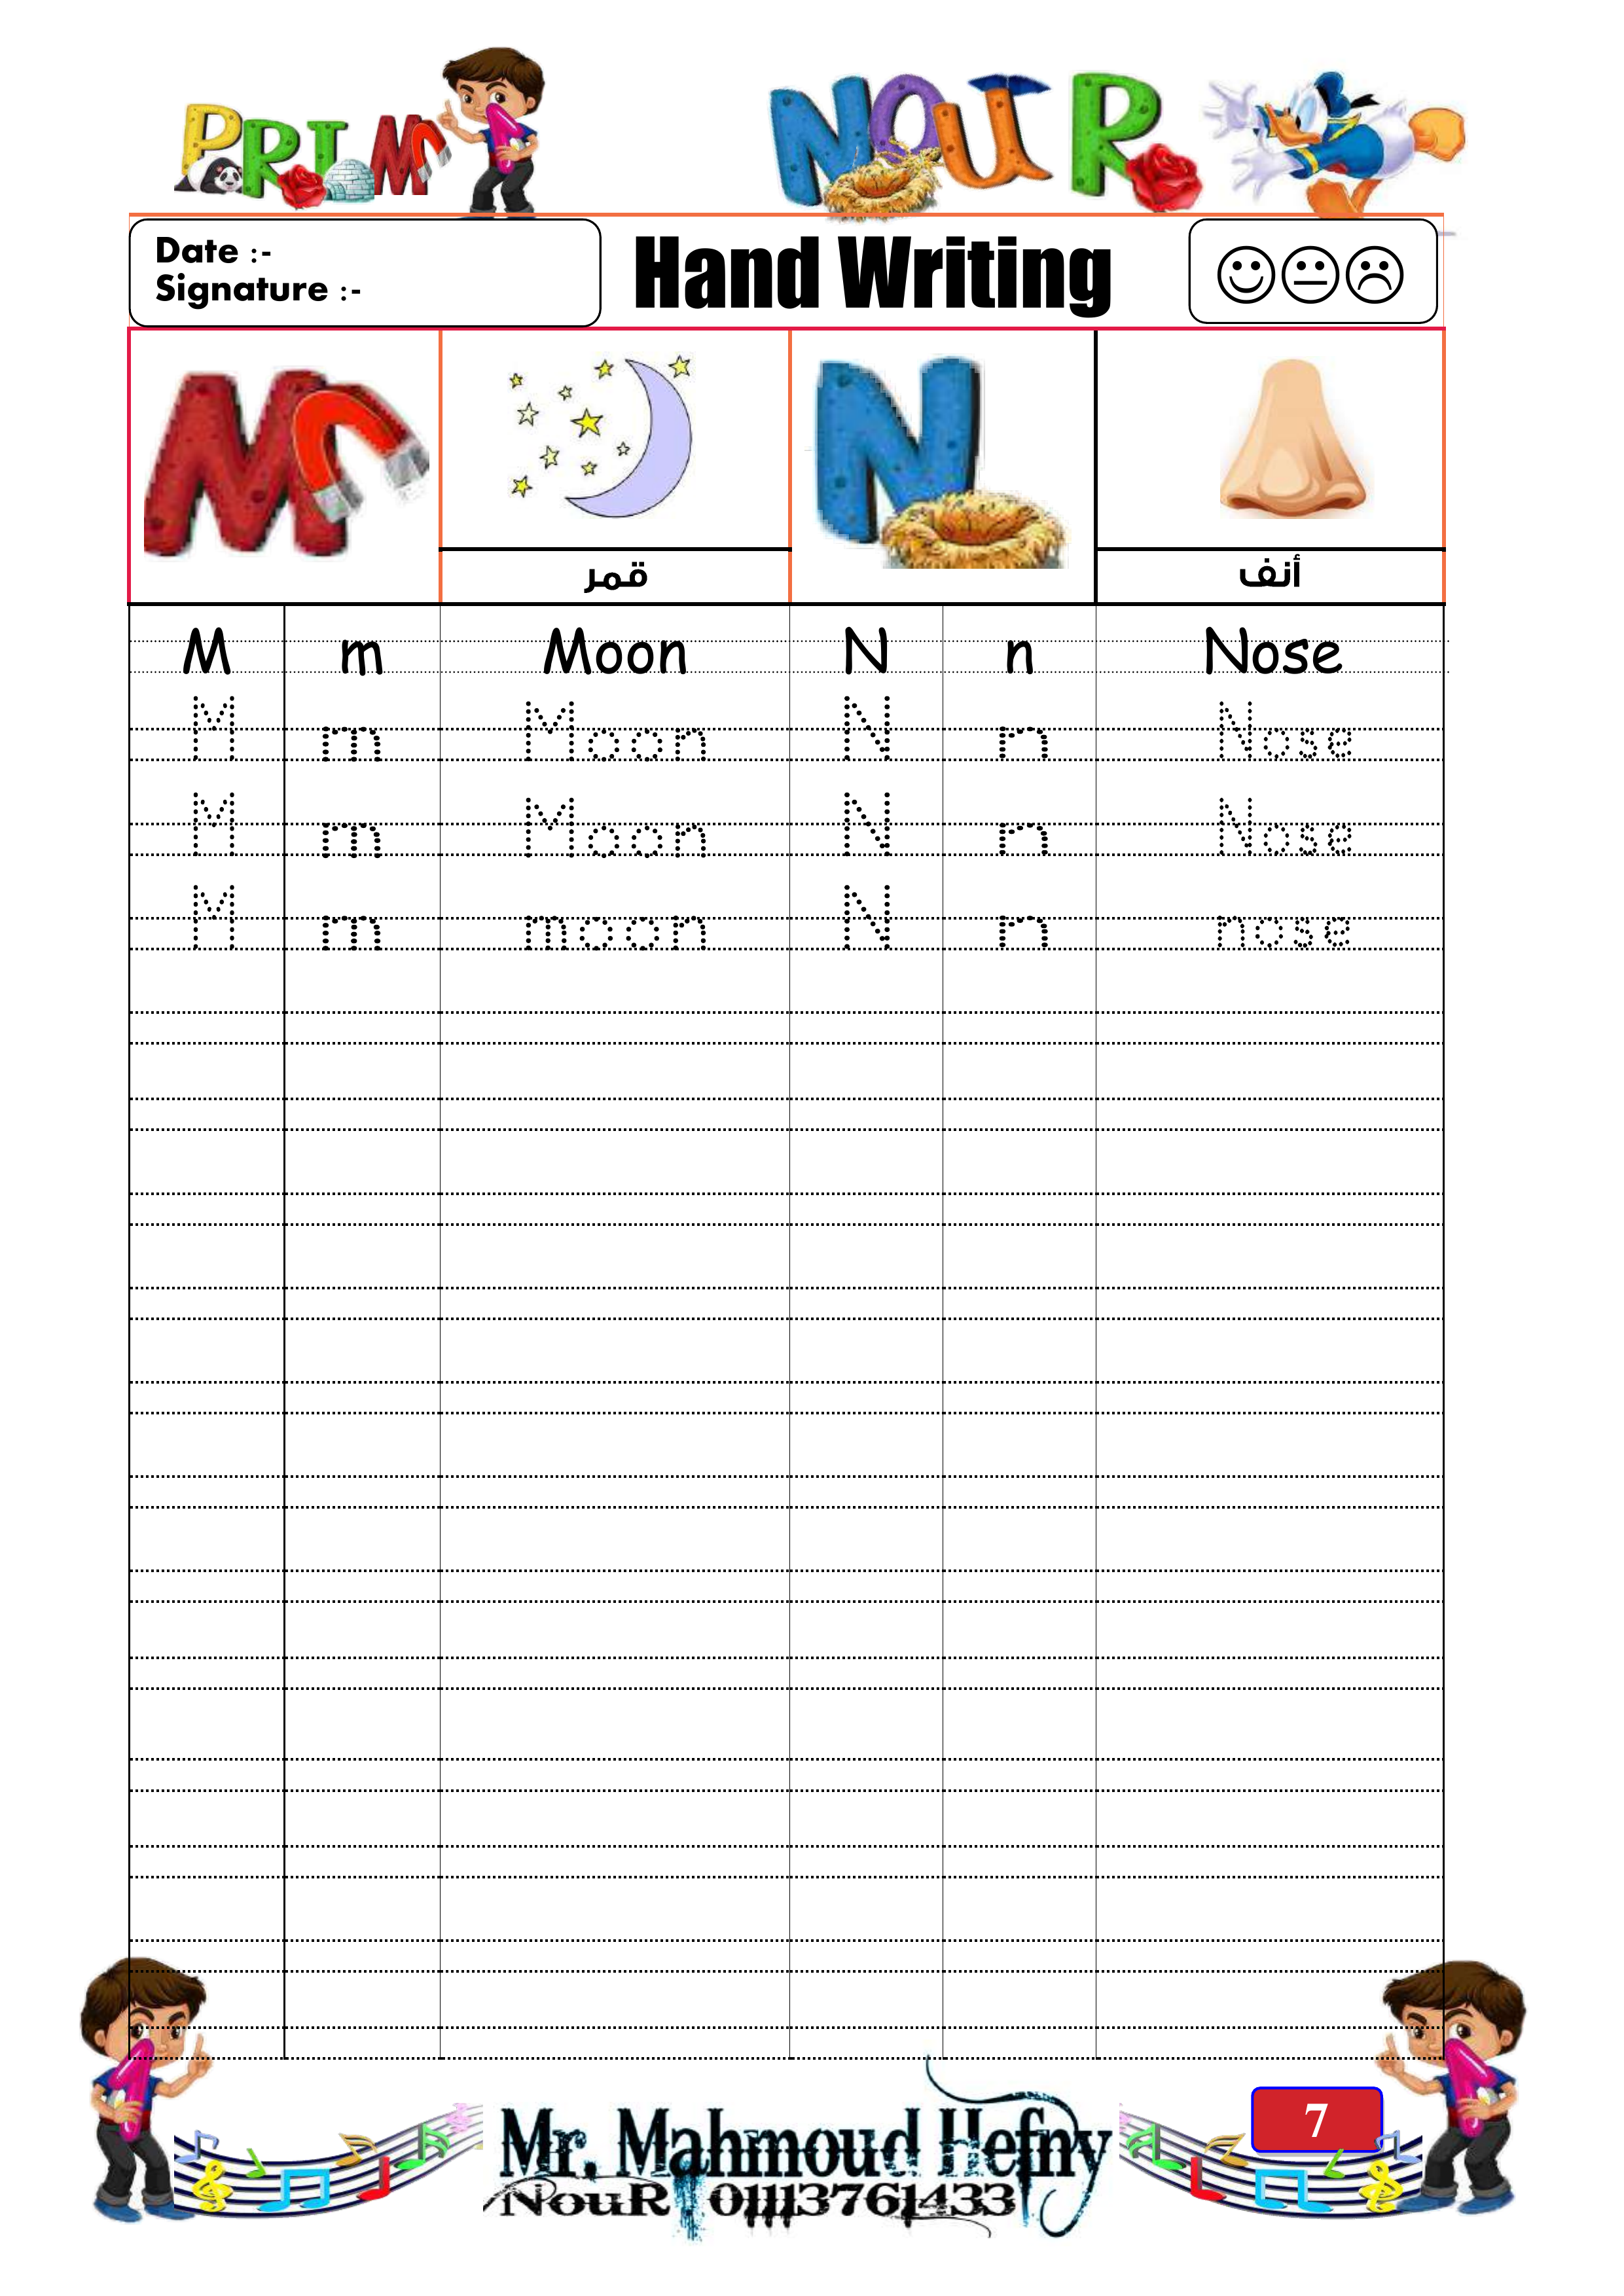 PRIM 1
NOUR
Date :-
Signature :-
Hand Writing
M
N
قمر
أنف
M m Moon N n Nose
M m Moon N n Nose
M m Moon N n Nose
M m moon N n nose
7
Mr. Mahmoud Hefny
NouR 01113761433